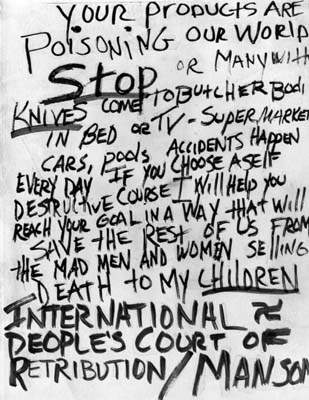 YOUR PRODUCTS ARE
POISONING OUR WORLD
STOP OR MANY WITH
KNIVES COME TO BUTCHER BODI
IN BED OR TV - SUPERMARKET
CARS, POOLS ACCIDENTS HAPPEN
EVERY DAY IF YOU CHOOSE A SELF
DESTRUCTIVE COURSE I WILL HELP YOU
REACH YOUR GOAL IN A WAY THAT WILL
SAVE THE REST OF US FROM
THE MAD MEN AND WOMEN SELLING
DEATH TO MY CHILDREN
INTERNATIONAL
PEOPLE'S COURT OF
RETRIBUTION/MANSON